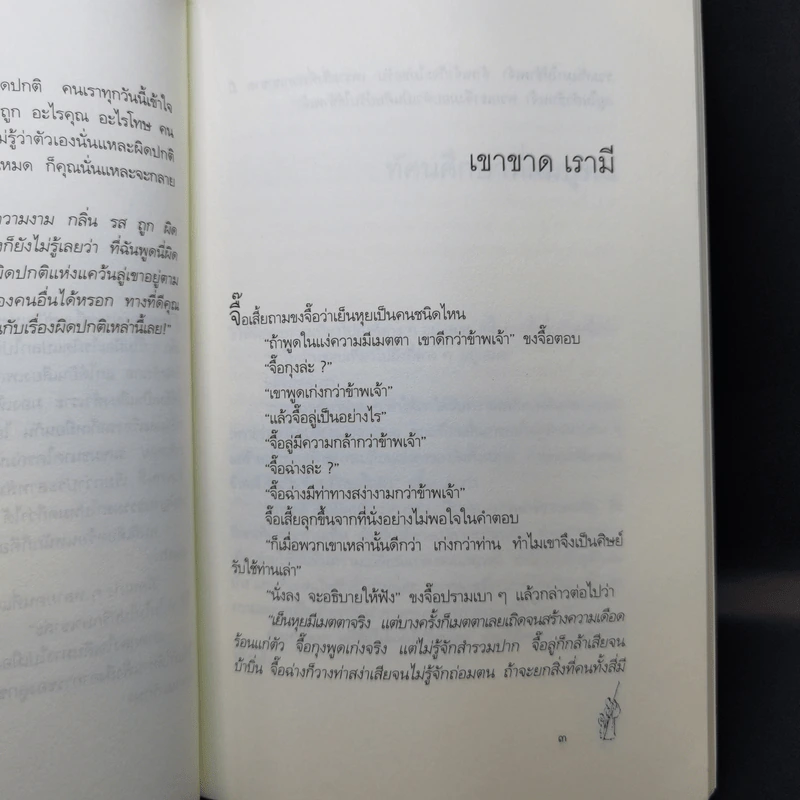 ผิดปกติ คนเราทุกวันนี้เข้าใจ
ถูก อะไรคุณ อะไรโทษ คน
รู้ว่าตัวเองนั่นแหละผิดปกติ
หมด ก็คุณนั่นแหละจะกลาย
ความงาม กลิ่น รส ถูก ผิด
ก็ยังไม่รู้เลยว่า ที่ฉันพูดนี่ผิด
ผิดปกติแห่งแคว้นลู่เขาอยู่ตาม
ของคนอื่นได้หรอก ทางที่ดีคุณ
กับเรื่องผิดปกติเหล่านี้เลย!"
เขาขาด เรามี
จื๊อเสี้ยถามขงจื๊อว่าเย็นหุยเป็นคนชนิดไหน
"ถ้าพูดในแง่ความมีเมตตา เขาดีกว่าข้าพเจ้า" ขงจื๊อตอบ
"จื๊อกุงล่ะ ?"
"เขาพูดเก่งกว่าข้าพเจ้า"
"แล้วจื๊อลู่เป็นอย่างไร"
"จื๊อลู่มีความกล้ากว่าข้าพเจ้า"
"จื๊อฉ่างล่ะ ?"
"จื๊อฉ่างมีท่าทางสง่างามกว่าข้าพเจ้า"
จื๊อเสี้ยลุกขึ้นจากที่นั่งอย่างไม่พอใจในคำตอบ
"ก็เมื่อพวกเขาเหล่านั้นดีกว่า เก่งกว่าท่าน ทำไมเขาจึงเป็นศิษย์
รับใช้ท่านเล่า"
"นั่งลง จะอธิบายให้ฟัง" ขงจื๊อปรามเบา ๆ แล้วกล่าวต่อไปว่า
"เย็นหุยมีเมตตาจริง แต่บางครั้งก็เมตตาเลยเถิดจนสร้างความเดือด
ร้อนแก่ตัว จื๊อกุงพูดเก่งจริง แต่ไม่รู้จักสำรวมปาก จื๊อลู่ก็กล้าเสียจน
บ้าบิ่น จื๊อฉ่างก็วางท่าสง่าเสียจนไม่รู้จักถ่อมตน ถ้าจะยกสิ่งที่คนทั้งสี่มี
๓